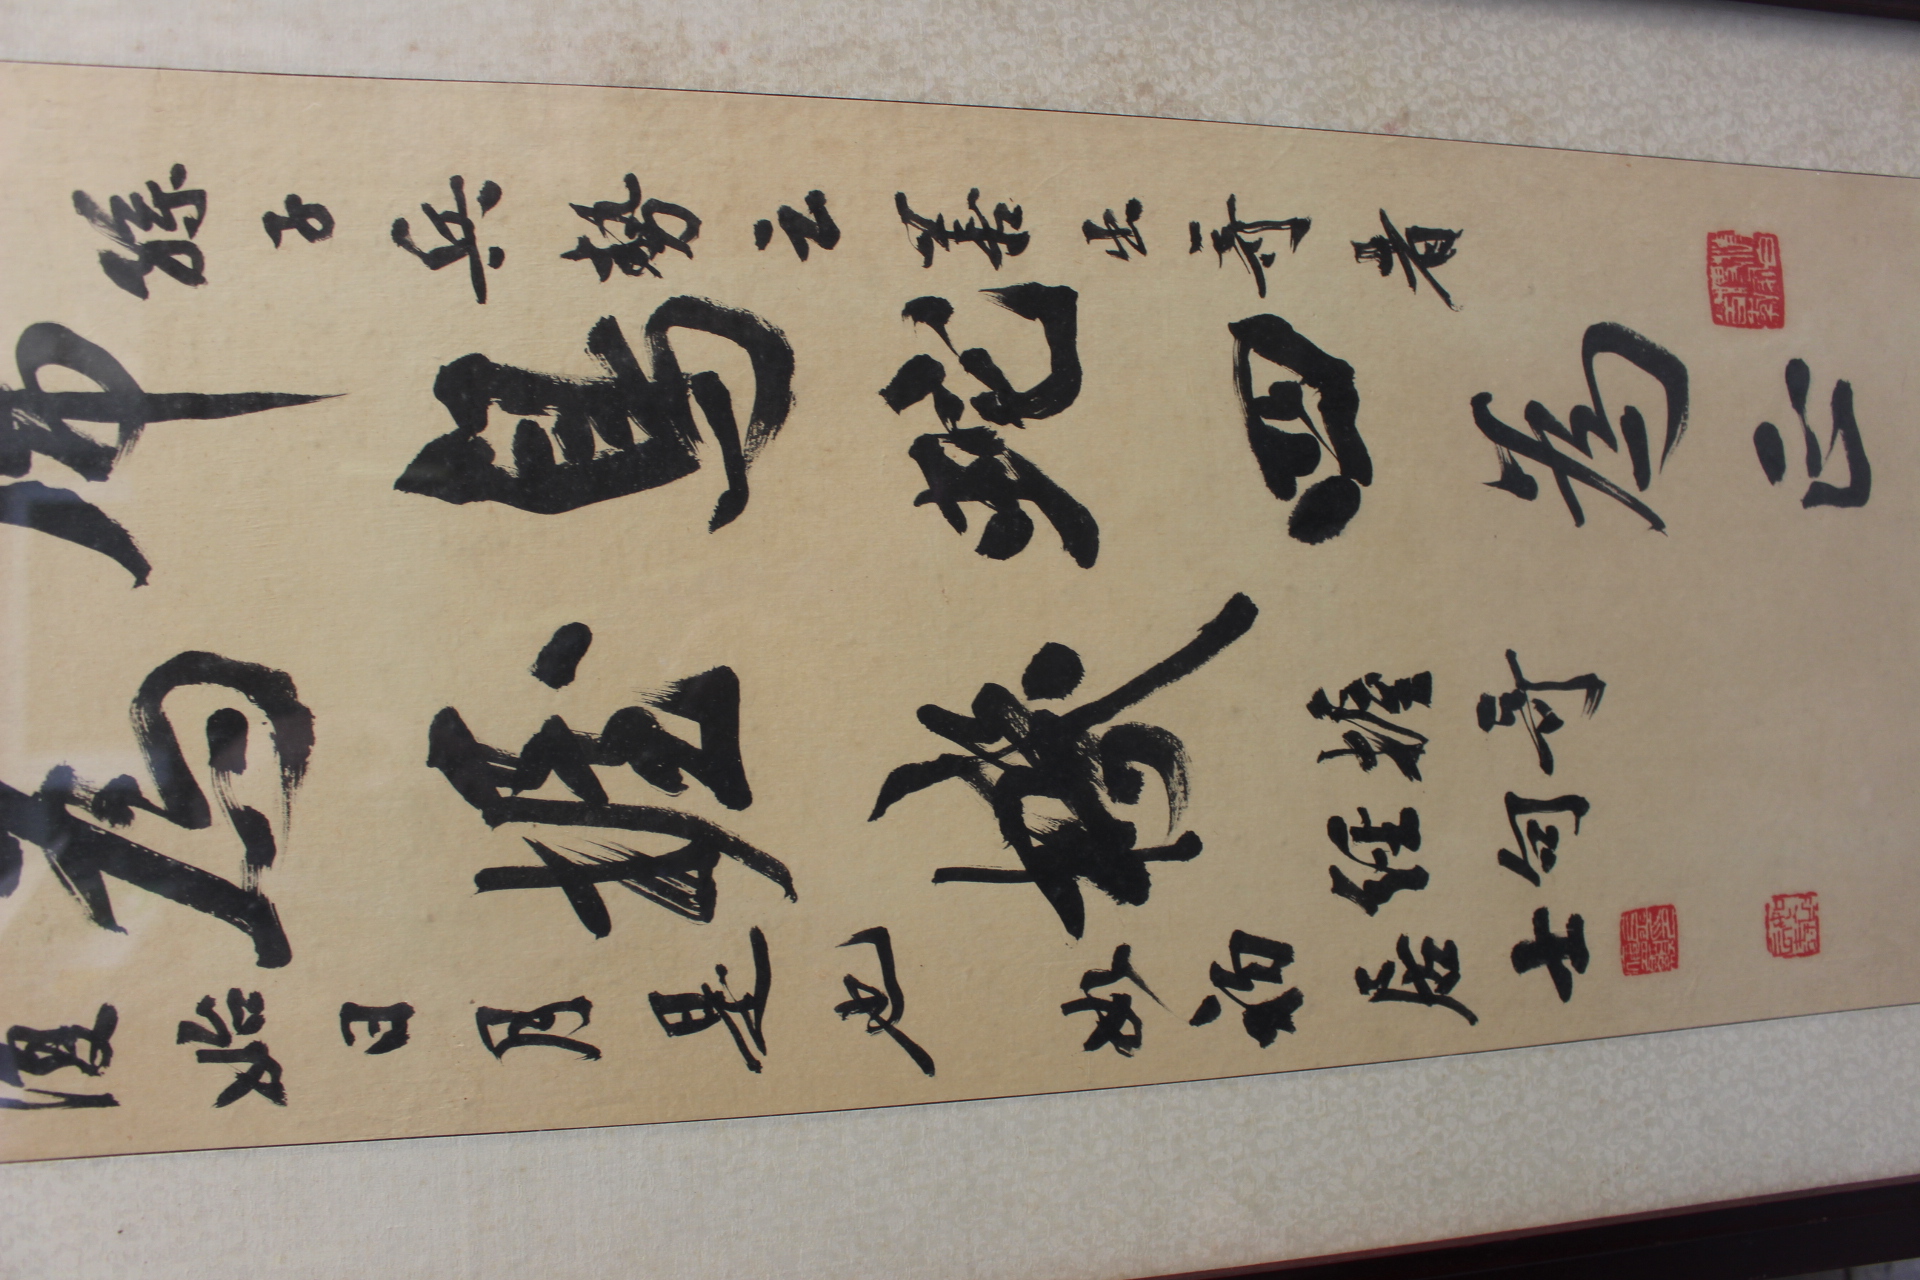 孫子兵勢云善出奇者
虎鳥蛇四為正
為握機
握奇
經句
復始日月是也 如初居士